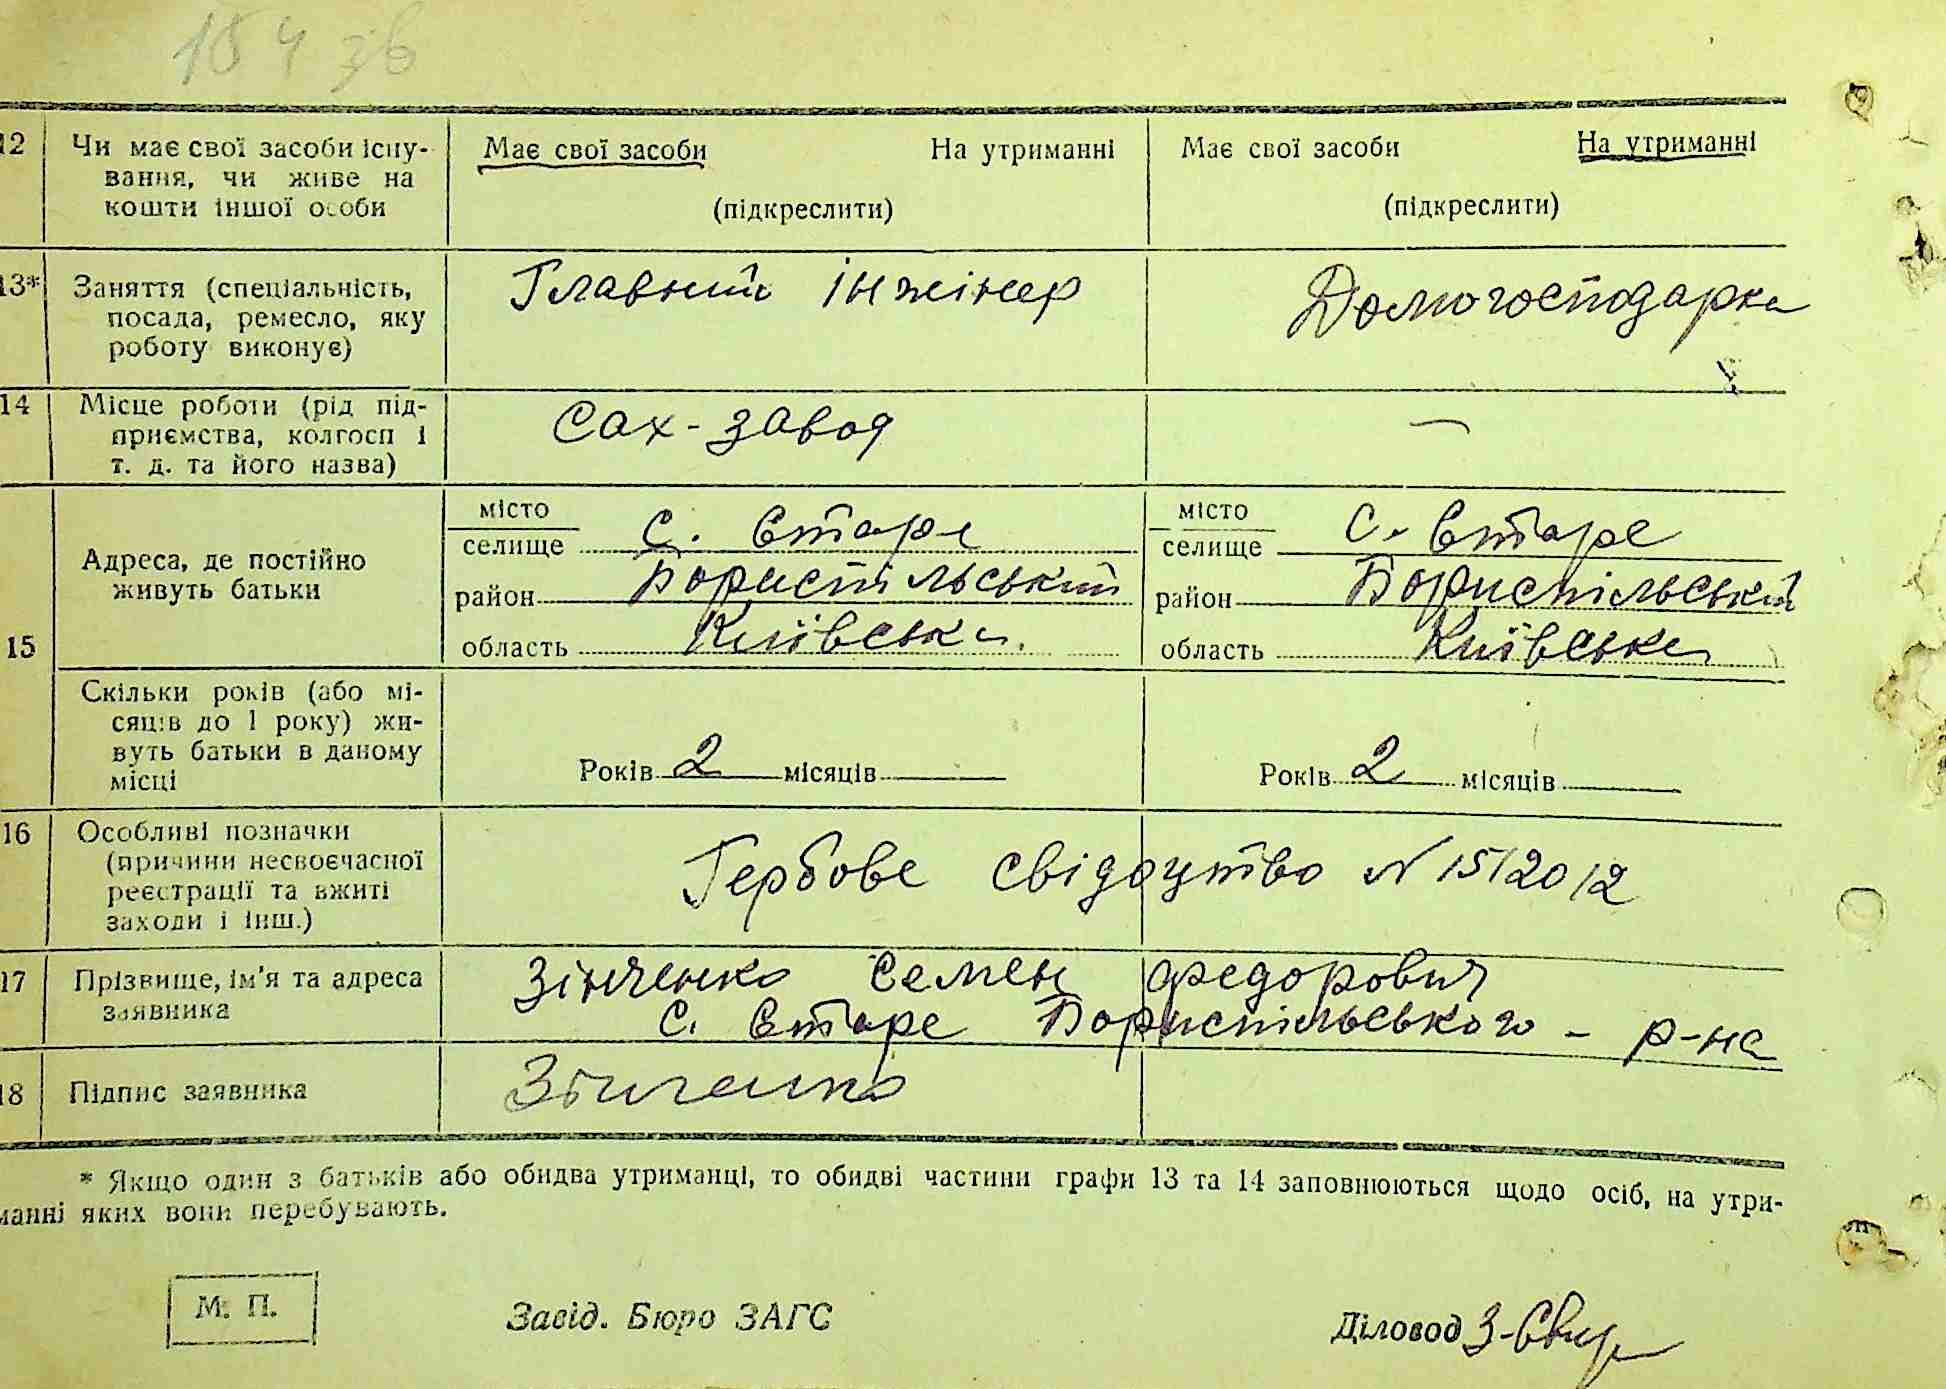 154 зв
12 Чи має свої засоби існу- Має свої засоби На утриманні Має свої засоби На утриманні
вання, чи живе на
кошти іншої особи (підкреслити) (підкреслити)
13* Заняття (спеціальність, Главний інжінер Домогосподарка
посада, ремесло, яку
роботу виконує)
14 Місце роботи (рід під- Сах-завод —
приємства, колгосп і
т. д. та його назва)
15 Адреса, де постійно живуть батьки
місто
селище с. Старе
район Бориспільський
область Київська.
місто
селище с. Старе
район Бориспільський
область Київська
Скільки років (або мі-
сяців до 1 року) жи-
вуть батьки в даному
місці
Років 2 місяців Років 2 місяців
16 Особливі позначки
(причини несвоєчасної
реєстрації та вжиті
заходи і інш.)
Гербове свідоцтво N 1512012
17 Прізвище, ім'я та адреса
заявника
Зінченко Семен Федорович
с. Старе Бориспільського - р-на
18 Підпис заявника Зінченко
* Якщо один з батьків або обидва утриманці, то обидві частини графи 13 та 14 заповнюються щодо осіб, на утри-
манні яких вони перебувають.
М. П. Завід. Бюро ЗАГС Діловод